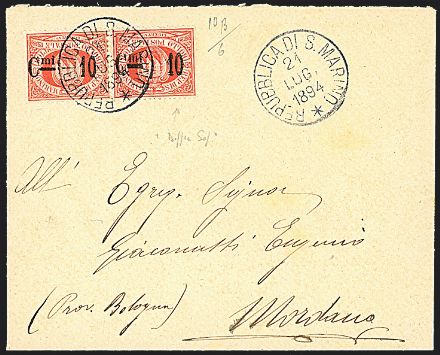 10 B
6
Cmi. 10 Cmi. 10
REPUBBLICA DI S. MARINO
1894
REPUBBLICA DI S. MARINO
21
LUG.
1894
All' Egreg. Signor
Giacometti Eugenio
(Prov. Bologna) Mordano